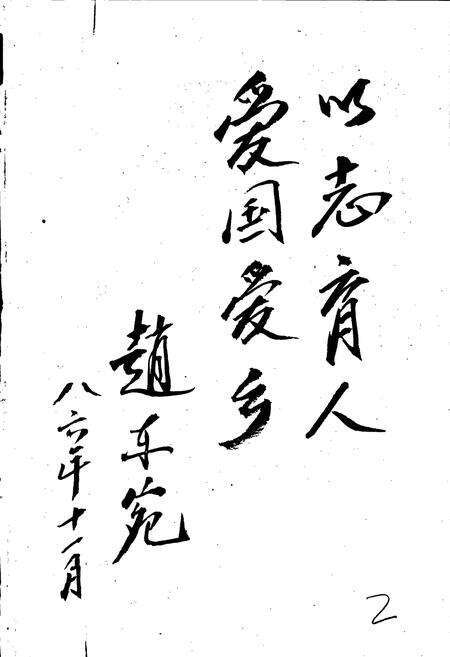 以志育人
爱国爱乡
趙东宛
八六年十一月
2